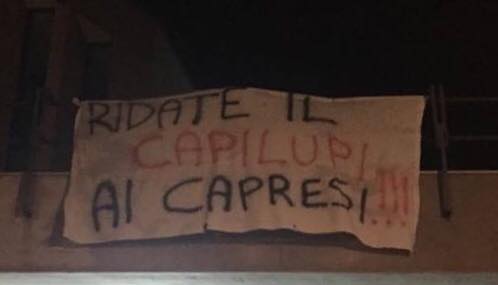 RIDATE IL
CAPILUPI
AI CAPRESI!!!